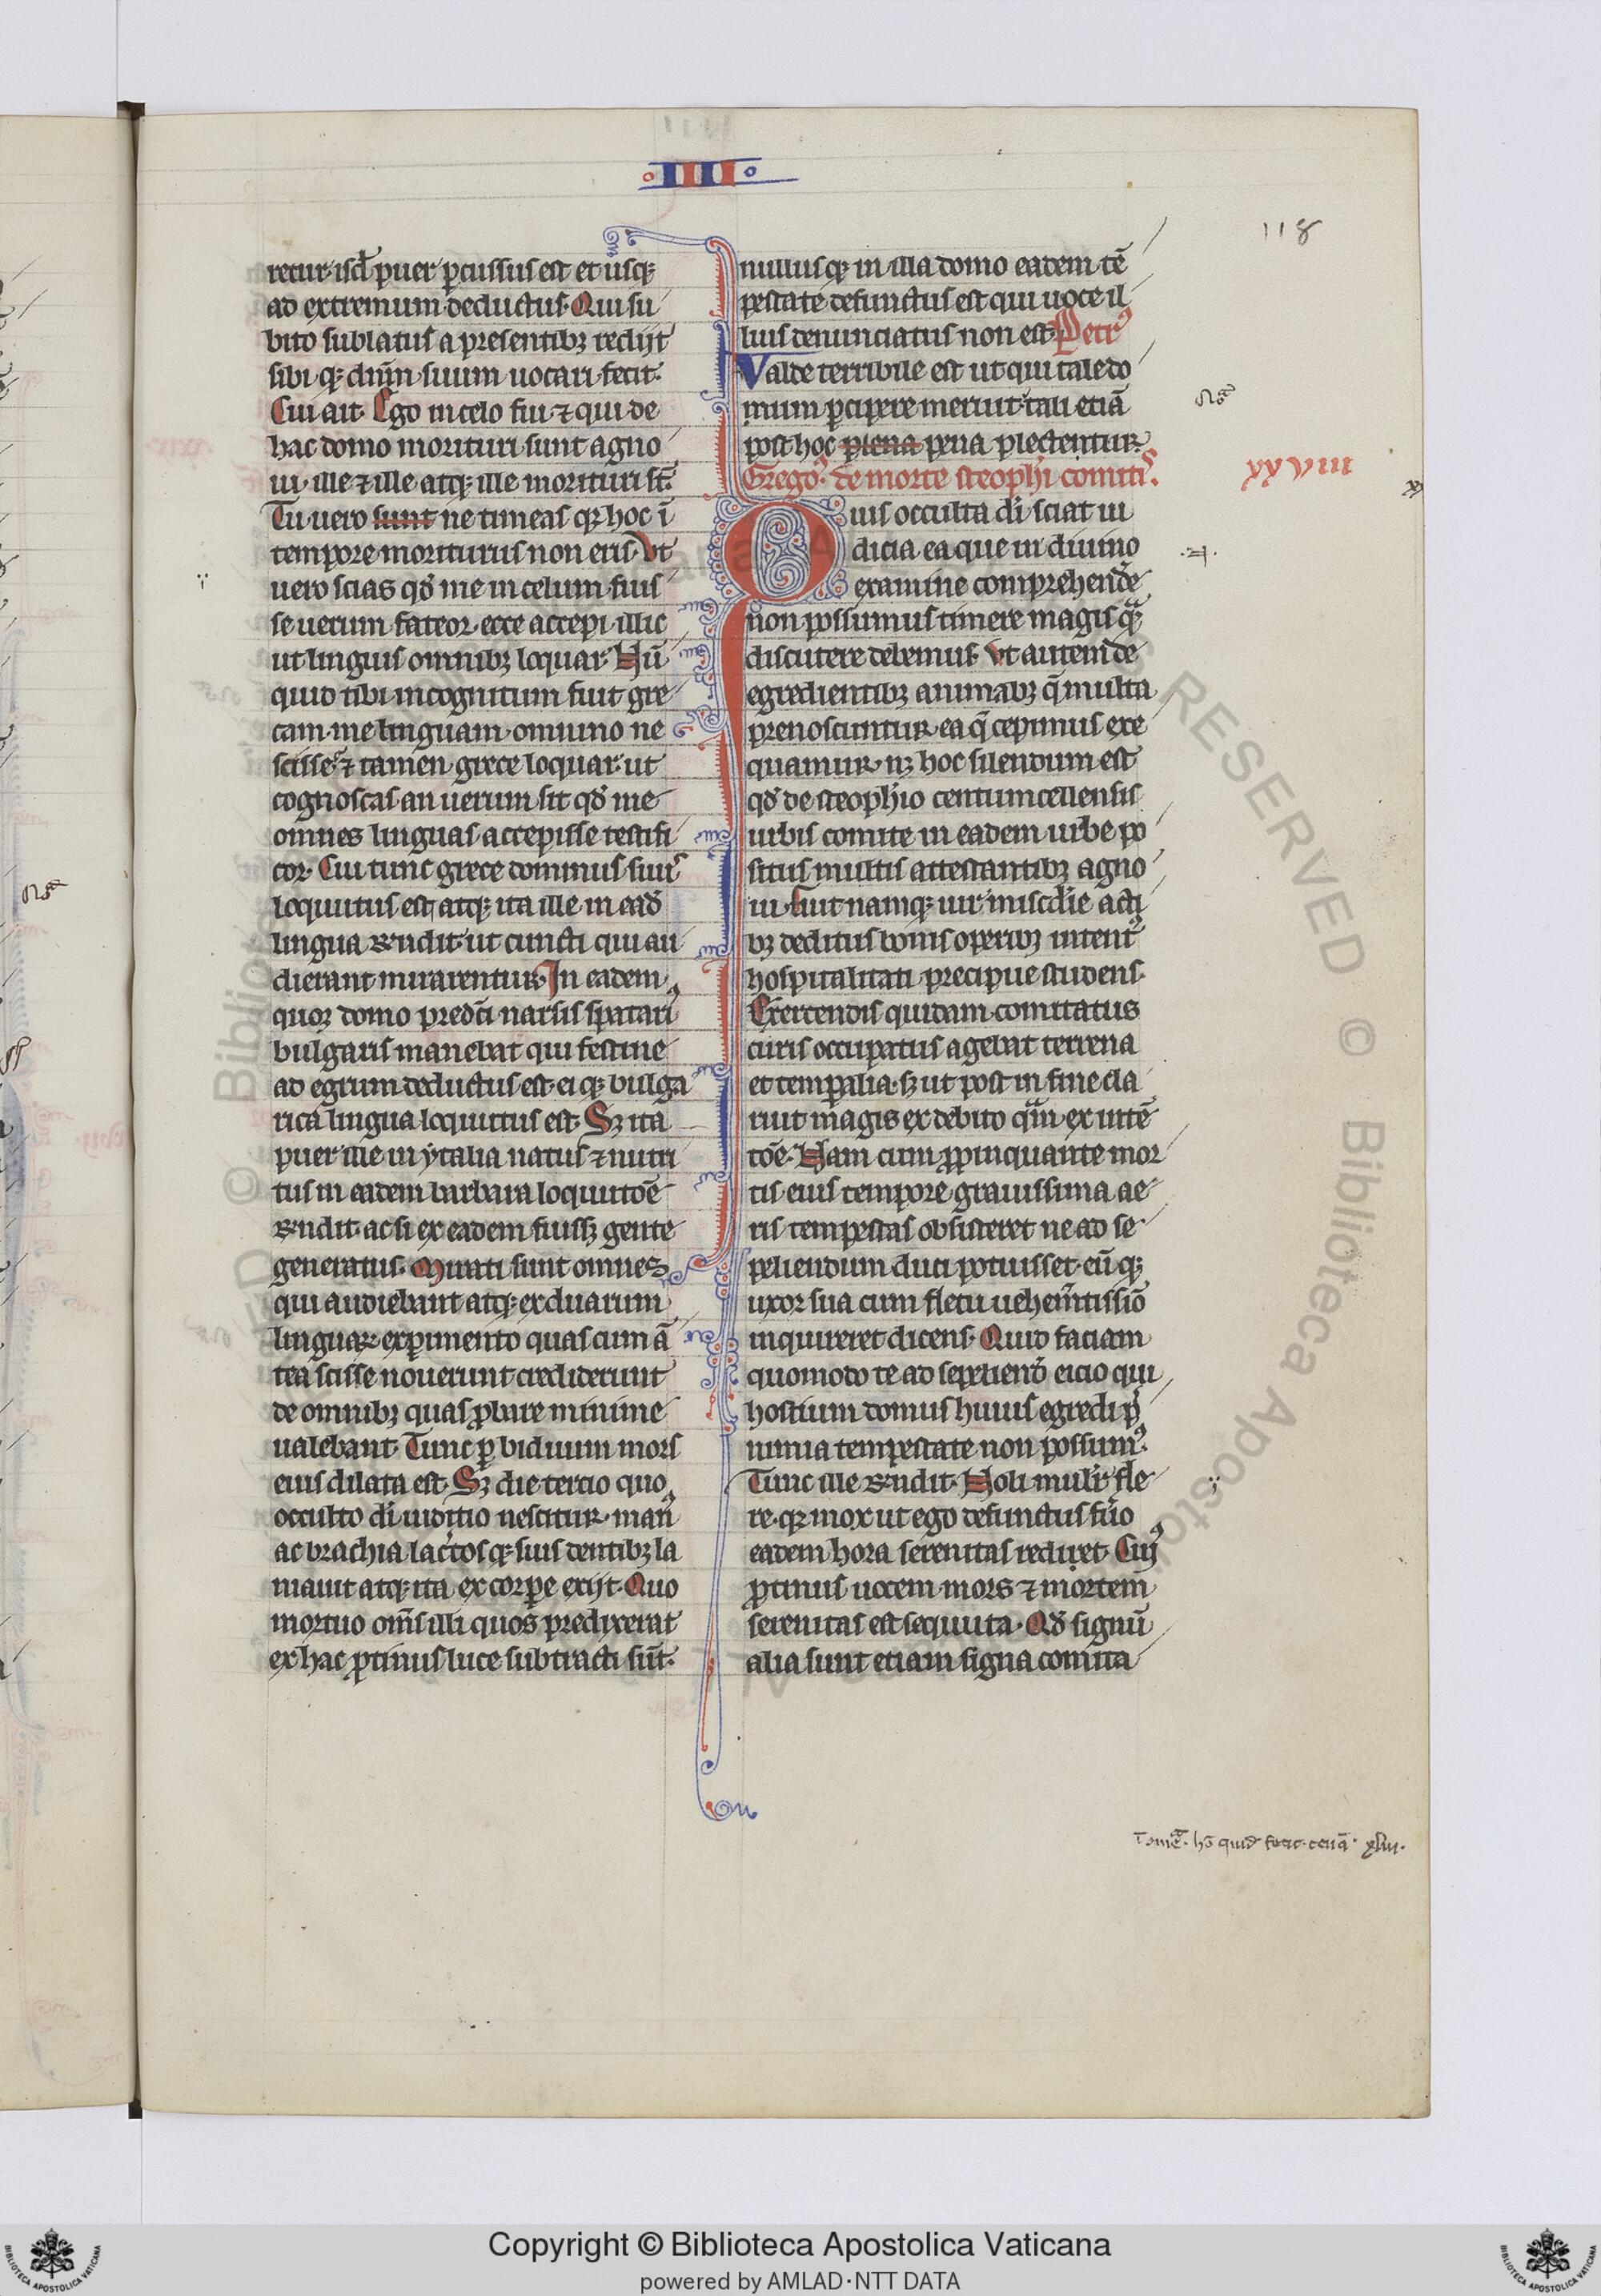 IIII
118
retur· isd̾ puer ꝑcussus est et usqꝫ
ad extremum deductus. Qui su
bito sublatus a presentibꝫ redijt
sibi qꝫ dn̄m suum uocari fecit.
Cui ait. Ego in celo fui ⁊ qui de
hac domo morituri sunt agno
ui· ille ⁊ ille atqꝫ ille morituri st̄.
Tu uero sunt ne timeas qꝫ hoc ī
tempore moriturus non eris. Vt
uero scias qd̾ me in celum fuis
se uerum fateor· ecce accepi illic
ut linguis omnibꝫ loquar. Nū
quid tibi incognitum fuit gre
cam me linguam omnino ne
scisse· ⁊ tamen grece loquar· ut
cognoscas an uerum sit qd̾ me
omnes linguas accepisse testifi
cor. Cui tunc grece dominus suus
loquutus est· atqꝫ ita ille in ead̾
lingua rn̄dit· ut cuncti qui au
dierant mirarentur. In eadem
quoqꝫ domo predc̄i narsis spatari
bulgaris manebat qui festine
ad egrum deductus est· ei qꝫ bulga
rica lingua loquutus est. Sꝫ ita
puer ille in ytalia natus ⁊ nutri
tus in eadem barbara loquutōe
rn̄dit· ac si ex eadem fuissꝫ gente
generatus. Mirati sunt omnes
qui audiebant atqꝫ ex duarum
linguaꝝ exꝑimento quas eum ā
tea scisse nouerunt crediderunt
de omnibꝫ quas ꝓbare minime
ualebant. Tunc ꝑ biduum mors
eius dilata est. Sꝫ die tercio quo
occulto dī iuditio nescitur· man᷒
ac brachia lac̾tos qꝫ suis dentibꝫ la
niauit atqꝫ ita ex corꝑe exijt. Quo
mortuo om̄s illi quos predixerat
ex hac ꝓtinus luce subtracti sūt.
nullus qꝫ in illa domo eadem tē
pestate defunctus est qui uoce il
lius denunciatus non est. Petr᷒
Valde terribile est ut qui tale do
num ꝑcipere meruit· tali etiā
post hoc plena pena plectentur.
Grego᷒. de morte steophi comitis.
xxviii
Quis occulta dī sciat iu
dicia ea que in diuino
examine comprehend̾e
non possumus timere magis qꝫ
discutere debemus. Vt autem de
egredientibꝫ animabꝫ q̄ multa
prenoscuntur· ea q̄ cepimus exe
quamur· nꝫ hoc silendum est
qd̾ de steophīo centumcellensis
urbis comite in eadem urbe po
situs multis attestantibꝫ agno
ui. Fuit namqꝫ uir mīscdīe acti
bꝫ deditus bonis operibꝫ intent᷒
hospitalitati precipue studens.
Exercendis quidam comitatus
curis occupatus agebat terrena
et temꝑalia· sꝫ ut post in fine cla
ruit magis ex debito q̄m ex intē
tōe. Nam cum ꝓpinquante mor
tis eius tempore grauissima ae
ris tempestas obsisteret ne ad se
peliendum duci potuisset· eū qꝫ
uxor sua cum fletu uehem̄tissīo
inquireret dicens. Quid faciam
quomodo te ad sepeliend̾ eicio qui
hostium domus huius egredi p̄
nimia tempestate non possum᷒.
Tunc ille rn̄dit. Noli mulīr fle
re· qꝫ mox ut ego defunctus fūo
eadem hora serenitas rediet. Cui᷒
ꝓtinus uocem mors ⁊ mortem
serenitas est sequuta. Qd̾ signū
alia sunt etiam signa comita